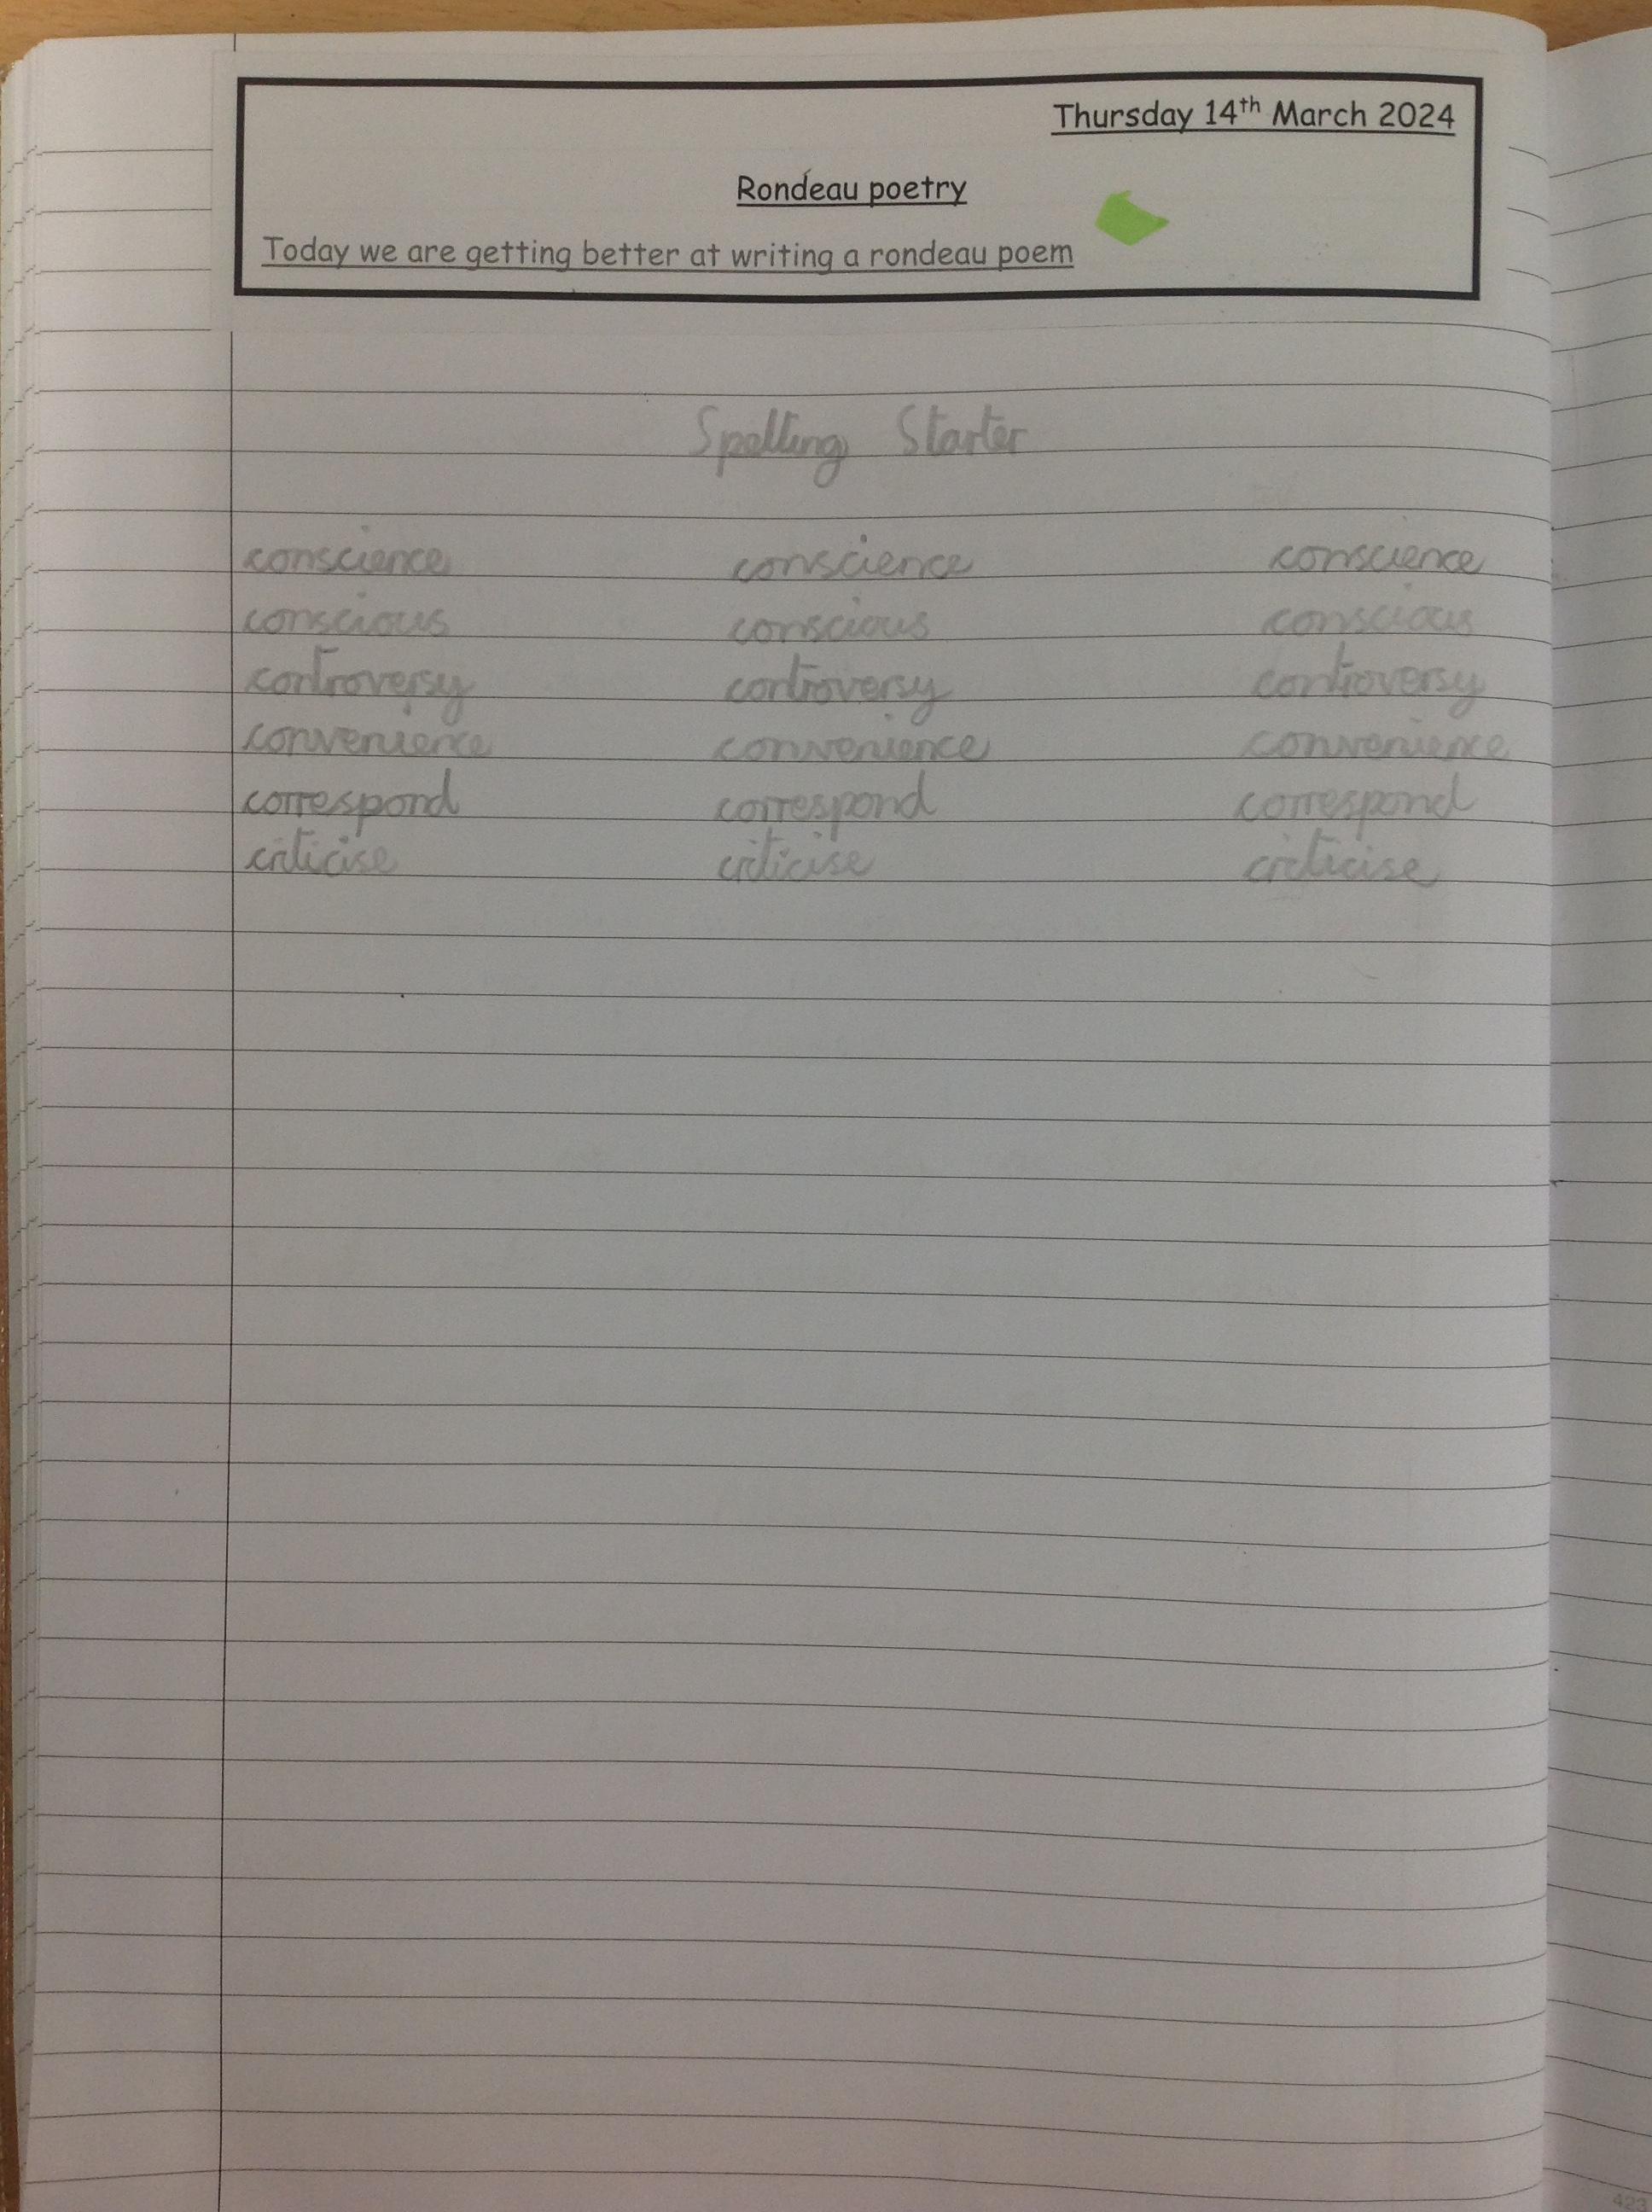 Thursday 14th March 2024
Rondeau poetry
Today we are getting better at writing a rondeau poem
Spelling Starter
conscience conscience conscience
conscious conscious conscious
controversy controversy controversy
convenience convenience convenience
correspond correspond correspond
criticise criticise criticise